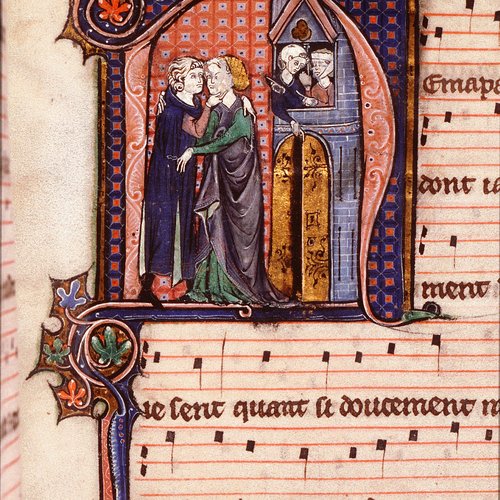 Emapa
dont ia
ment
ie sent quant si doucement m